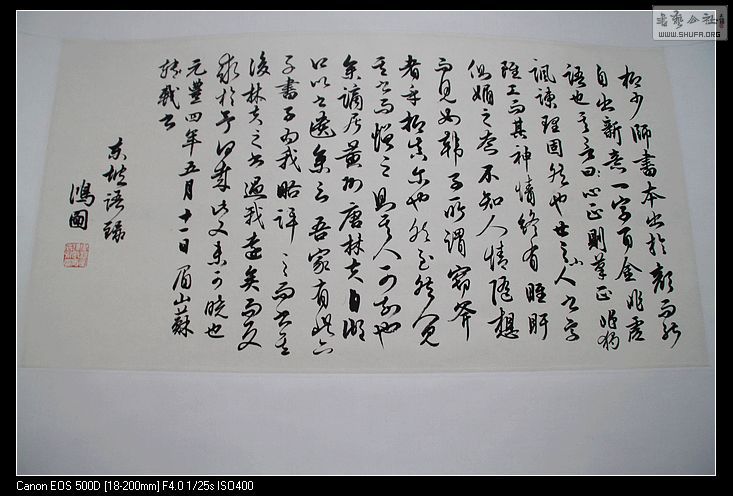 柳少師書本出於顏而能
自出新意一字百金非虛
語也其言曰心正則筆正非獨
諷諫理固然也世之小人書字
雖工而其神情終有睢盱
側媚之態不知人情隨想
而見如韓子所謂竊斧
者乎抑真尔也然至使人見
其書而憎之則其人可知也
余謫居黄州唐林夫自湖
口以書遺余云吾家有此六
子書子為我略評之而書其
後林夫之書過我遠矣而反
求於予何哉此又未可曉也
元豐四年五月十一日眉山蘇
軾戲書
东坡語録
鴻圖
书艺公社
WWW.SHUFA.ORG
Canon EOS 500D [18-200mm] F4.0 1/25s ISO400